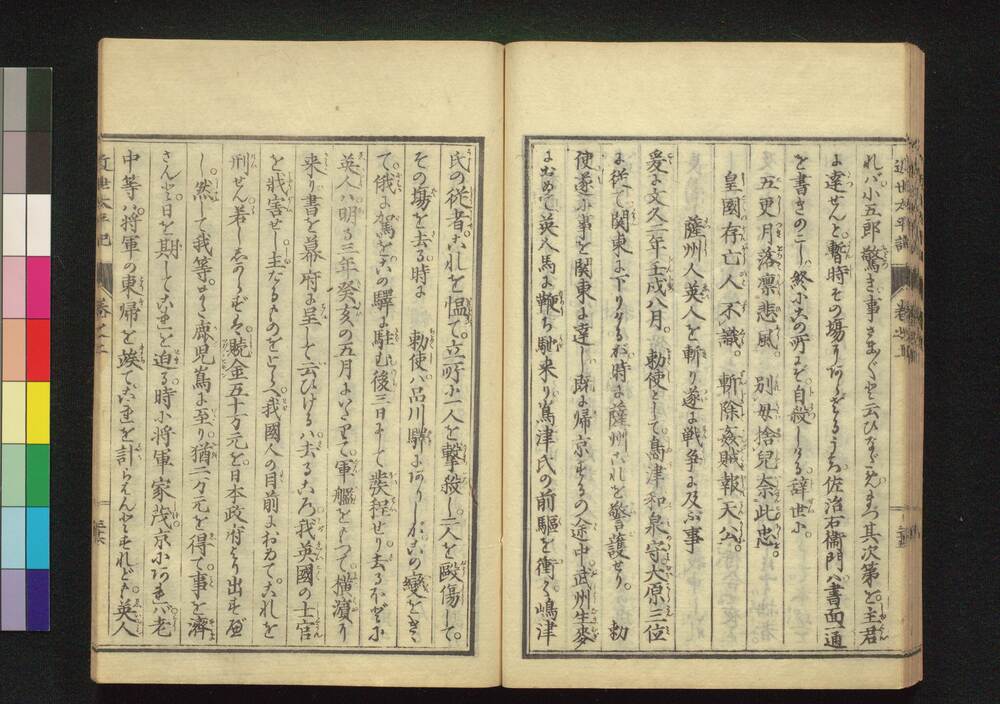 れバ小五郎驚き事さまぐと云ひなだえまづ其次第を主君
に達せんと暫時その場にありざるうち佐治右衛門ハ書面一通
を書きのこし終に其所にぞ自殺しける辞世に
五更月落凛悲風。別母捨兒奈此忠。
皇國存亡人不識。斬除姦賊報天公。
薩州人英人を斬り遂に戦争に及ぶ事
爰に文久二年壬戌八月。勅使として島津和泉守大原三位
に従て関東に下りける於時に薩州これを警護せり。勅
使遂に事を関東に達し。既に帰京するの途中。武州生麥
において英人馬に鞭ち馳来り嶌津氏の前駆を衝く嶋津
氏の従者これを愠て。立所に一人を撃殺し二人を毆傷して。
その塲を去る時に 勅使ハ品川驛にありしがこの變をきゝ
て。俄に駕をこの驛に駐む後三日にして發程せり。去るほどに
英人ハ明る三年癸亥の五月にいたりて。軍艦をもつて横濵に
来り書を幕府に呈して云ひけるハ去るころ我英國の士官
を戕害せし主たるものをとらへ我國人の目前において。これを
刑せん若ししからずバ贖金五十万元を。日本政府より出すべ
し。然して我等。まづ鹿児嶌に至り猶二万元を得て。事を濟
さんと日を期してこれを迫る時に将軍家茂京にあれバ老
中等ハ将軍の東帰を竢てこれを計らんとすれども。英人
近世太平記 巻之二 三十五
近世太平記 巻之二 三十六